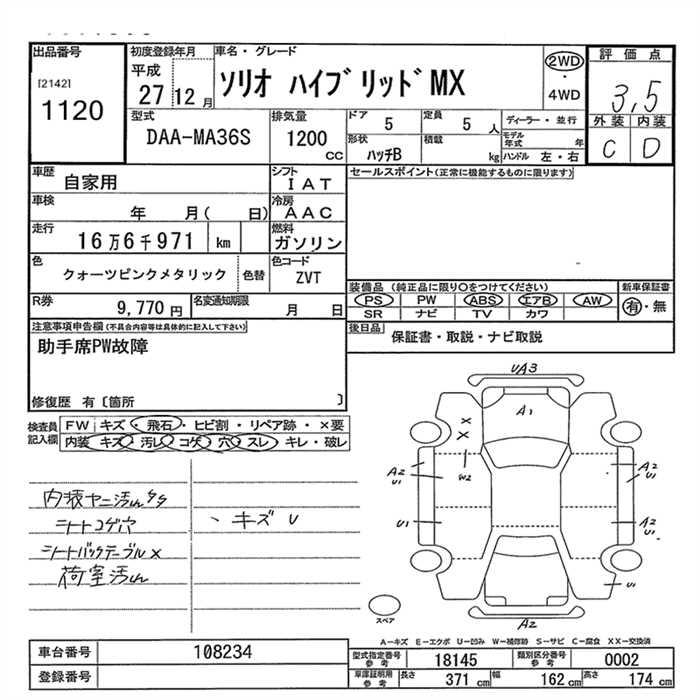 出品番号
[2142]
1120
初度登録年月
平成
27 12月
車名・グレード
ソリオ ハイブリッドMX
2WD
・
4WD
評価点
3,5
外装 内装
C D
型式
DAA-MA36S
排気量
1200
CC
ドア
5
定員
5 人
形状
ハッチB
積載
kg
ディーラー・並行
モデル年式 年
ハンドル 左・右
車歴
自家用
シフト
IAT
車検
年 月( 日)
冷房
AAC
走行
16万6千971 km
燃料
ガソリン
色
クォーツピンクメタリック
色替
色コード
ZVT
R券
9,770 円
名変通知期限
月 日
セールスポイント(正常に機能するものに限ります)
装備品 (純正品に限り○をつけてください)
PS PW ABS エアB AW
SR ナビ TV カワ
新車保証書
有・無
後日品
保証書・取説・ナビ取説
注意事項申告欄(不具合内容等は具体的に記入して下さい)
助手席PW故障
修復歴 有〔箇所 〕
検査員記入欄
FW キズ・飛石・ヒビ割・リペア跡・×要
内装 キズ・汚レ・コゲ・穴・スレ・キレ・破レ
内装ヤニ汚レ
シートコゲ穴
シートバックテーブル×
荷室汚レ
、キズU
UA3
A1
X
XX
W2
A2
U1
A2
U1
U1
A2
U1
U1
A2
スペア
A-キズ E-エクボ U-凹み W-補修跡 S-サビ C-腐食 XX-交換済
車台番号
108234
登録番号
型式指定番号
参考
18145
類別区分番号
参考
0002
車庫証明用
参考
長さ
371 cm
幅
162 cm
高さ
174 cm